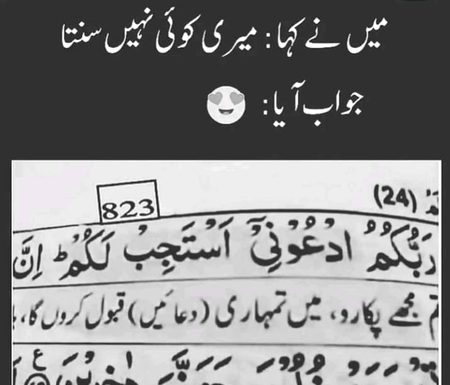 میں نے کہا: میری کوئی نہیں سنتا
جواب آیا: 😍
(24)
823
رَبُّكُمُ ادْعُوْنِیْۤ اَسْتَجِبْ لَكُمْ ؕ اِنَّ
مجھے پکارو، میں تمہاری (دعائیں) قبول کروں گا،